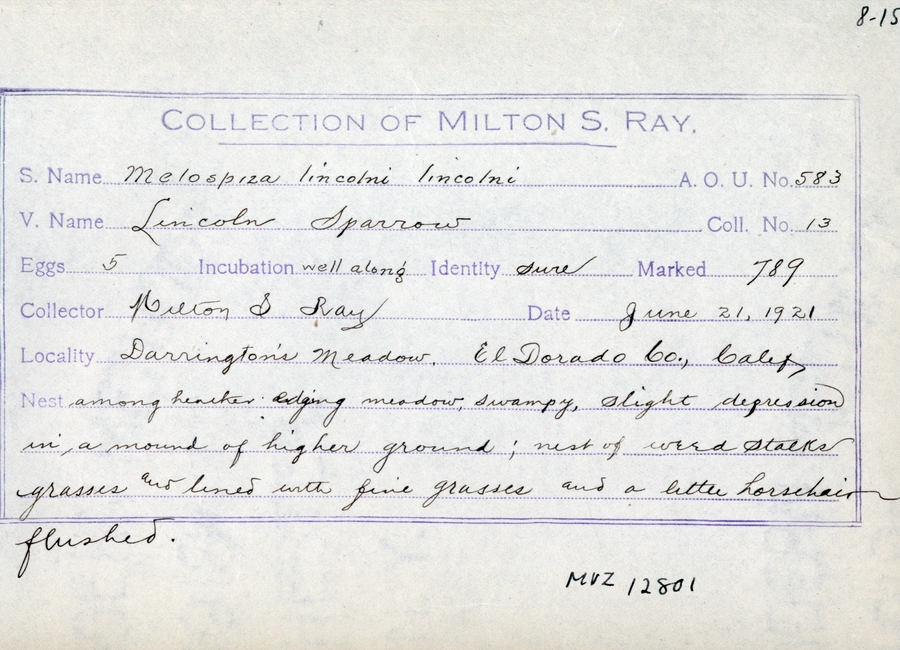 8-15
COLLECTION OF MILTON S. RAY.
S. Name Melospiza lincolni lincolni A. O. U. No. 583
V. Name Lincoln Sparrow Coll. No. 13
Eggs 5 Incubation well along Identity sure Marked 789
Collector Milton S Ray Date June 21, 1921
Locality Darrington's Meadow, El Dorado Co., Calif,
Nest among heather edging meadow, swampy, slight depression
in a mound of higher ground; nest of weed stalks
grasses and lined with fine grasses and a little horsehair
flushed.
MVZ 12801